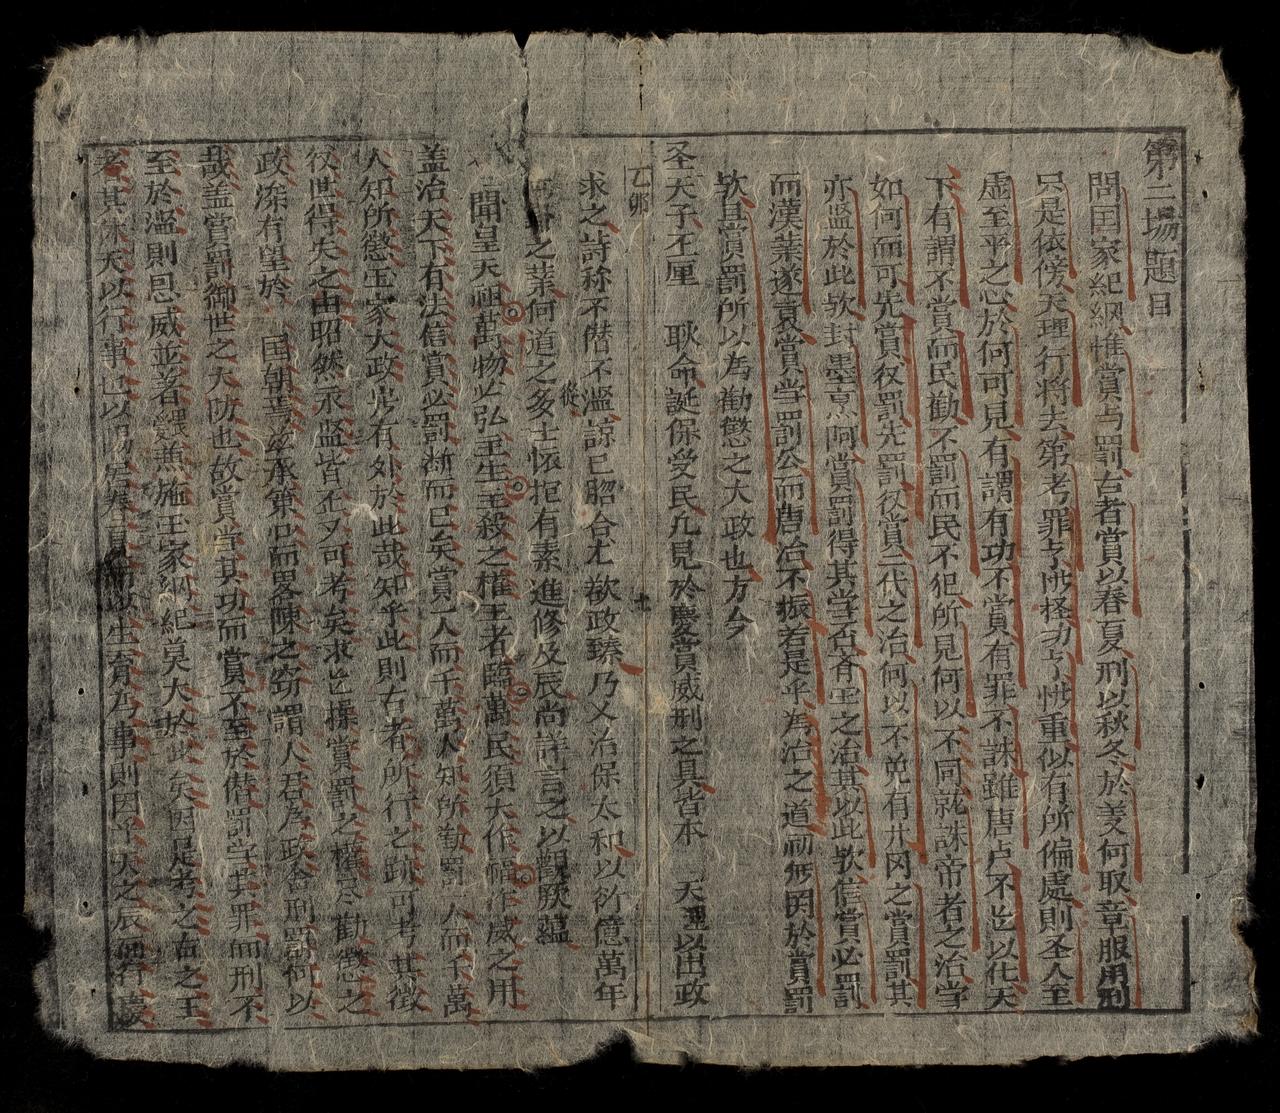 第二場題目
問囯家紀綱惟賞与罰古者賞以春夏刑以秋冬於羑何取章服用刑
只是依傍天理行将去第考罪亏惟軽功亏惟重似有所偏處則圣人至
虚至平之心於何可見有謂有功不賞有罪不誅雖唐虞不也以化天
下有謂不賞而民勸不罰而民不犯所見何以不同就誅帝者之治学
如何而可先賞後罰先罰後賞三代之治何以不免有廾冈之賞罰其
亦盜於此欤封墨烹阿賞罰得其学否斉王之治其以此欤信賞必罰
而漢葉遂衰賞学罰公而唐治不振若是乎為治之道亦無関於賞罰
欤且賞罰所以為勸懲之大政也方今
圣天子丕厘 耿命誕保受民凡見於慶賞威刑之具皆本 天理以出政
乙夘
七
求之詩称不僣不濫諒已脗合尤欲政臻乃乂治保太和以衍億萬年
之葉何道之多士懐抱有素進修及辰尚詳言之以覩厥蘊
從
聞皇天祖萬物必弘主生主殺之權王者臨萬民須大作福作威之用
盖治天下有法信賞必罰而已矣賞一人而千萬人知所勸罰一人而千萬
人知所懲王家大政是有外於此哉知乎此則古者所行之跡可考其徴
後世得失之由昭然永监皆丕又可考矣求也操賞罰之權尽勸懲之
政深有望於 囯朝辜兹承第問而畧陳之窃謂人君為政舍刑罰何以
哉盖賞罰御世之大防也故賞学其功而賞不至於僣罰学其罪而刑不
至於濫則恩威並著兼施王家綱紀莫大於此矣因是考之古之王
者其承天以行事也以陽居春夏而以生育為事則因乎天之辰而行慶